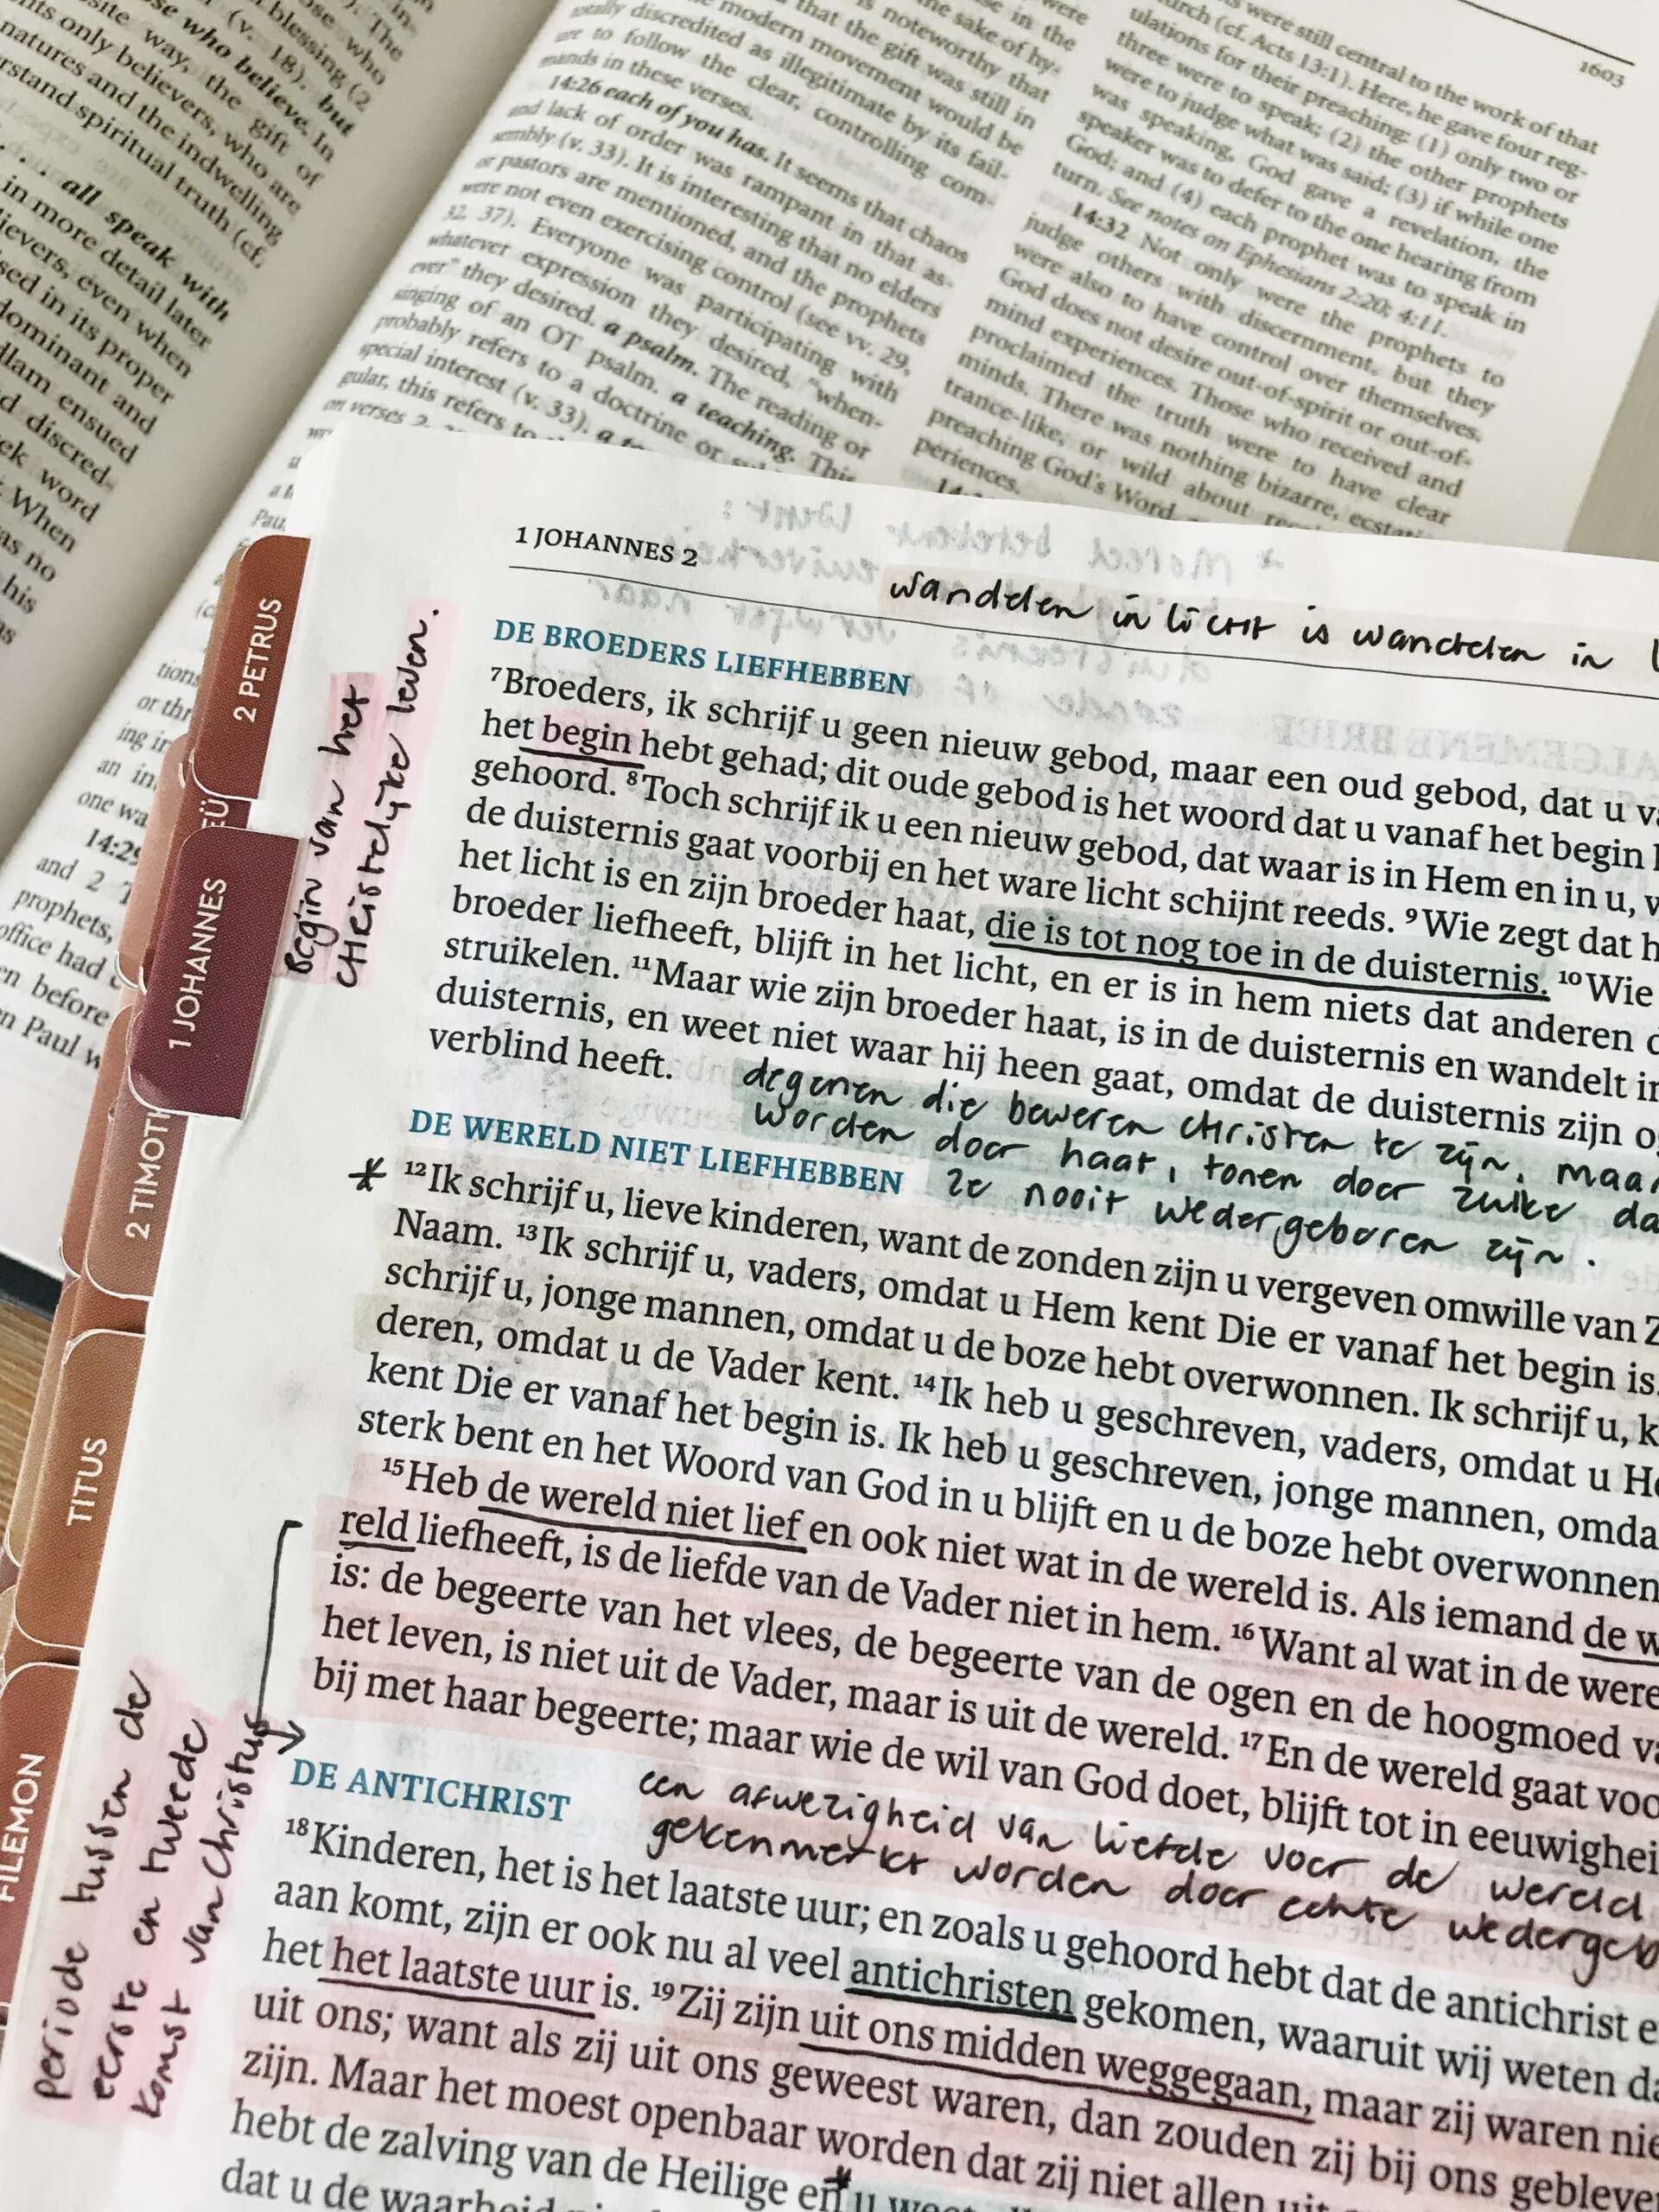 1603
(v. 18). The
site way, the gift of
ose who believe. In
nts only believers, who are
natures and the indwelling
rstand spiritual truth (cf.
all speak with
in more detail later
lievers, even when
sed in its proper
dominant and
dlam ensued
d discred-
ek word
When
as no
his
is noteworthy that
that the gift was still in
modern movement would be
totally discredited as illegitimate by its fail-
to follow the clear, controlling com-
mands in these verses.
14:26 each of you has. It seems that chaos
and lack of order was rampant in that as-
sembly (v. 33). It is interesting that no elders
or pastors are mentioned, and the prophets
were not even exercising control (see vv. 29,
32, 37). Everyone was participating with
whatever expression they desired, "when-
ever" they desired. a psalm. The reading or
singing of an OT psalm. a teaching. This
probably refers to a doctrine or
special interest (v. 33).
gular, this refers to
on verses 2,
were still central to the work of that
urch (cf. Acts 13:1). Here, he gave four reg-
ulations for their preaching: (1) only two or
three were to speak; (2) the other prophets
were to judge what was said; (3) if while one
was speaking, God gave a revelation, the
speaker was to defer to the one hearing from
God; and (4) each prophet was to speak in
turn. See notes on Ephesians 2:20; 4:11.
14:32 Not only were the prophets to
judge others with discernment, but they
were also to have control over themselves.
God does not desire out-of-spirit or out-of-
mind experiences. Those who received and
proclaimed the truth were to have clear
minds. There was nothing bizarre, ecstatic,
trance-like, or wild about
preaching God's Word
periences.
Pau
tions
or thr
ing in
an in
one wa
14:29
and 2
prophets,
office had
en before
en Paul w
2 PETRUS
1 JOHANNES
2 TIMOTH
TITUS
FILEMON
1 JOHANNES 2
wandelen in licht is wandelen in
DE BROEDERS LIEFHEBBEN
7Broeders, ik schrijf u geen nieuw gebod, maar een oud gebod, dat u va
het begin hebt gehad; dit oude gebod is het woord dat u vanaf het begin
gehoord. 8Toch schrijf ik u een nieuw gebod, dat waar is in Hem en in u, w
de duisternis gaat voorbij en het ware licht schijnt reeds. 9Wie zegt dat h
het licht is en zijn broeder haat, die is tot nog toe in de duisternis. 10Wie
broeder liefheeft, blijft in het licht, en er is in hem niets dat anderen d
struikelen. 11Maar wie zijn broeder haat, is in de duisternis en wandelt in
duisternis, en weet niet waar hij heen gaat, omdat de duisternis zijn o
verblind heeft.
begin van het
christelijke leven.
degenen die beweren christen te zijn, maar
worden door haat, tonen door zulke da
ze nooit wedergeboren zijn.
DE WERELD NIET LIEFHEBBEN
* 12Ik schrijf u, lieve kinderen, want de zonden zijn u vergeven omwille van Z
Naam. 13Ik schrijf u, vaders, omdat u Hem kent Die er vanaf het begin is.
schrijf u, jonge mannen, omdat u de boze hebt overwonnen. Ik schrijf u, k
deren, omdat u de Vader kent. 14Ik heb u geschreven, vaders, omdat u He
kent Die er vanaf het begin is. Ik heb u geschreven, jonge mannen, omda
sterk bent en het Woord van God in u blijft en u de boze hebt overwonnen
15Heb de wereld niet lief en ook niet wat in de wereld is. Als iemand de w
reld liefheeft, is de liefde van de Vader niet in hem. 16Want al wat in de were
is: de begeerte van het vlees, de begeerte van de ogen en de hoogmoed va
het leven, is niet uit de Vader, maar is uit de wereld. 17En de wereld gaat voo
bij met haar begeerte; maar wie de wil van God doet, blijft tot in eeuwighei
een afwezigheid van liefde voor de wereld
gekenmerkt worden door echte wedergeb
DE ANTICHRIST
18Kinderen, het is het laatste uur; en zoals u gehoord hebt dat de antichrist e
aan komt, zijn er ook nu al veel antichristen gekomen, waaruit wij weten da
het het laatste uur is. 19Zij zijn uit ons midden weggegaan, maar zij waren nie
uit ons; want als zij uit ons geweest waren, dan zouden zij bij ons gebleve
zijn. Maar het moest openbaar worden dat zij niet allen uit
hebt de zalving van de Heilige en u
dat u de waarheid
periode tussen de
eerste en tweede
komst van Christus